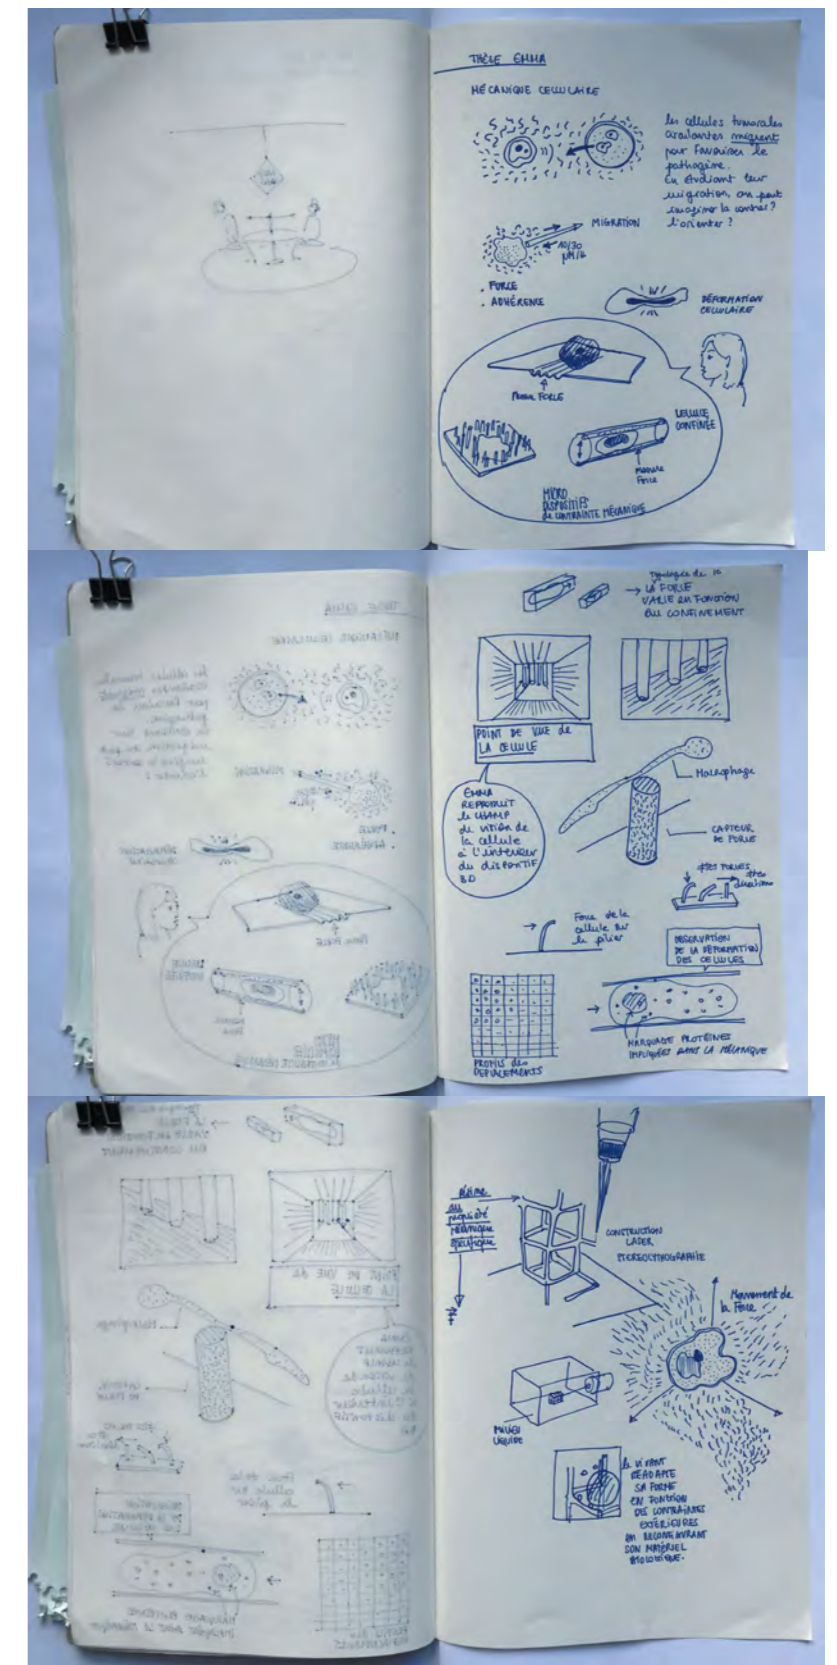 THÈSE EMMA
MÉCANIQUE CELLULAIRE
les cellules tumorales
circulantes migrent
pour favoriser le
pathogène.
En étudiant leur
migration on peut
imaginer la contrer?
l'orienter?
MIGRATION
10/30
µM/H
. FORCE
. ADHÉRENCE
DÉFORMATION
CELLULAIRE
Mesure FORCE
CELLULE
CONFINÉE
Mesure
Force
MICRO
DISPOSITIFS
de CONTRAINTE MÉCANIQUE
Typologie de la
→ LA FORCE
VARIE EN FONCTION
DU CONFINEMENT
POINT DE VUE de
LA CELLULE
EMMA
REPRODUIT
le CHAMP
de vision de
la cellule
à l'intérieur
du dispositif
3D
Macrophage
CAPTEUR
DE FORCE
≠tes FORCES
≠tes
directions
Force de la
cellule sur
le pilier
OBSERVATION
DE LA DÉFORMATION
DES CELLULES
MARQUAGE PROTÉINES
IMPLIQUÉES DANS LA MÉCANIQUE
DÉPLACEMENTS
Résine
propriété
mécanique
spécifique
CONSTRUCTION
LASER
STEREOLYTHOGRAPHIE
Mouvement de
la Force
MILIEU
LIQUIDE
le VIVANT
RÉADAPTE
SA FORME
EN FONCTION
DES CONTRAINTES
EXTÉRIEURES
EN RECONFIGURANT
SON MATÉRIEL
BIOLOGIQUE.